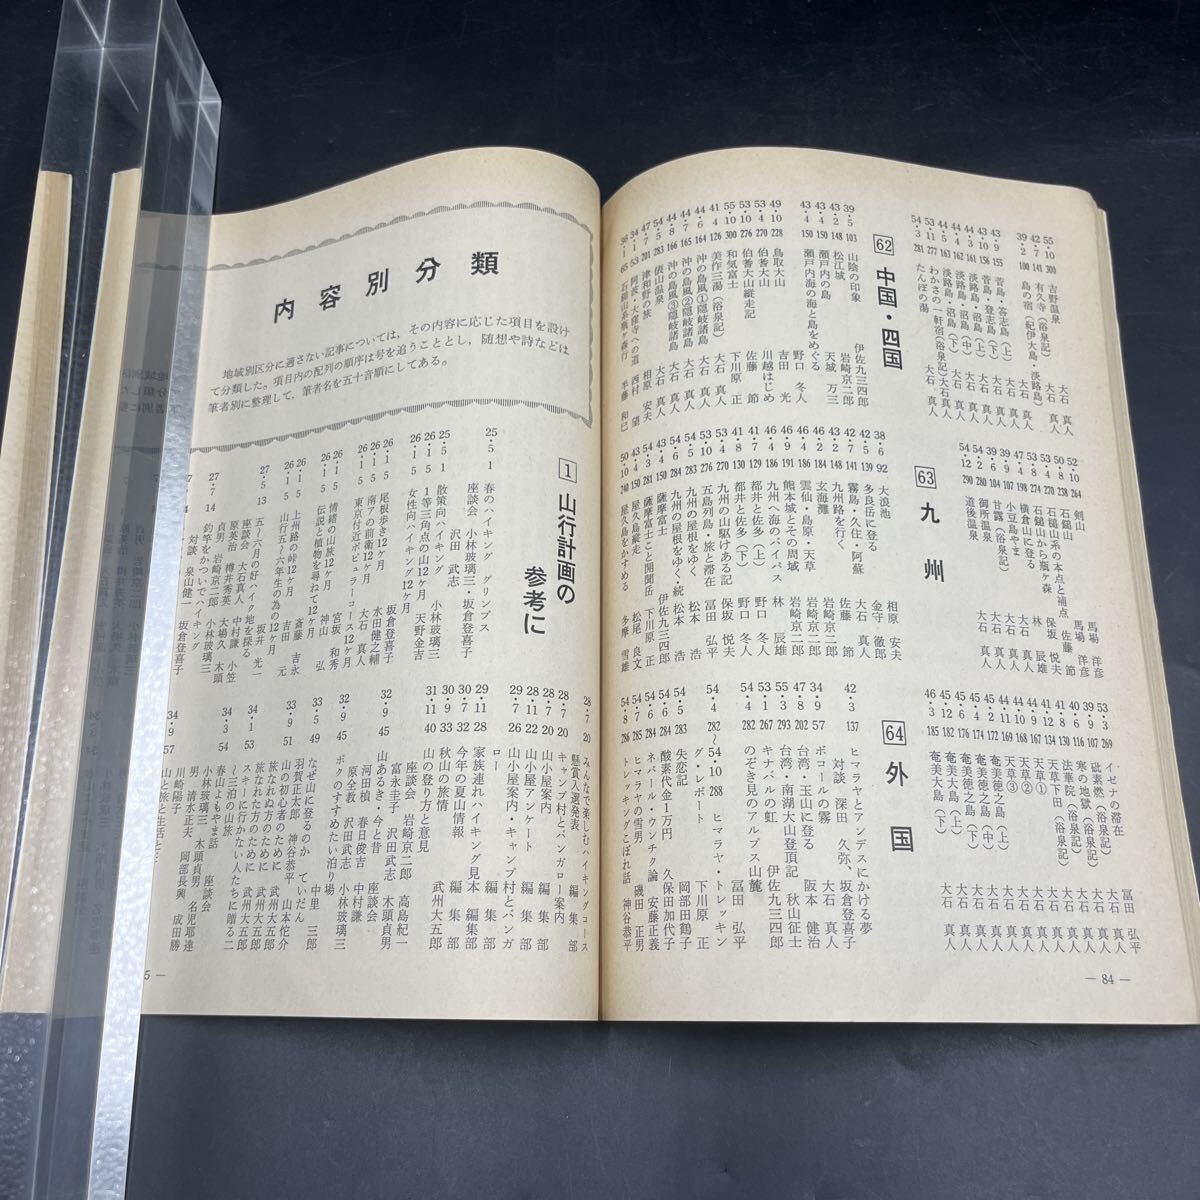 55・10 300 吉野温泉 大石 真人
42・7 141 有久寺（浴泉記） 大石 真人
39・2 100 島の宿（紀伊大島、淡路島） 大石 真人
43・9 155 菅島・答志島（上） 大石 真人
43・10 156 菅島・登志島（下） 大石 真人
44・3 161 淡路島・沼島（上） 大石 真人
44・4 162 淡路島・沼島（下） 大石 真人
53・11 277 わかさの一軒宿（浴泉記） 大石 真人
54・3 281 たんぽの湯 大石 真人
62 中国・四国
39・5 103 山陰の印象 伊佐九三四郎
43・2 148 松江城 岩崎京二郎
43・4 150 瀬戸内の島 天城 万三
43・4 150 瀬戸内海の海と島をめぐる 野口 冬人
49・10 228 鳥取大山 吉田 光
53・4 270 伯耆大山 川越はじめ
53・10 276 伯耆大山縦走記 佐藤 節
55・10 300 和気富士 下川原 正
41・4 126 美作三湯（浴泉記） 大石 真人
44・6 164 沖の島風①隠岐諸島 大石 真人
44・7 165 沖の島風②隠岐諸島 大石 真人
44・8 166 沖の島風③隠岐諸島 大石 真人
54・5 283 俵山温泉 大石 真人
47・7 201 津和野の旅 相原 安夫
34・1 53 阿波・大滝寺への道 西村 望
36・1 65 石鎚山系瓶ヶ森行 半藤 和巳
52・10 264 剣山 馬場 洋彦
50・8 238 石鎚山 馬場 洋彦
53・4 270 石鎚山系の本点と補点 佐藤 節
53・8 274 石鎚山から瓶ヶ森 保坂 悦夫
47・3 197 横倉山に登る 林 辰雄
39・9 107 小豆島やま 大石 真人
39・6 104 甘露（浴泉記） 大石 真人
54・10 280 御所温泉 大石 真人
54・12 290 道後温泉 大石 真人
63 九州
38・6 92 大浪池 相原 安夫
42・5 139 多良岳に登る 金守 徹郎
42・7 141 霧島・久住・阿蘇 大石 真人
43・2 148 九州路を行く 佐藤 節
46・2 184 玄海灘 岩崎京二郎
46・4 186 雲仙・島原・天草 岩崎京二郎
46・9 191 熊本城とその周域 岩崎京二郎
46・4 186 九州へ海のバイパス 林 辰雄
41・7 129 都井と佐多（上） 野口 冬人
41・8 130 都井と佐多（下） 野口 冬人
53・2 268 九州の山駆けある記 保坂 悦夫
53・10 276 五島列島・旅と滞在 冨田 弘平
54・5 283 九州の屋根をゆく 松本 浩
54・6 284 九州の屋根をゆく・続 松本 浩
43・4 150 薩摩富士 伊佐九三四郎
54・3 281 薩摩富士こと開聞岳 下川原 正
50・4 234 屋久島縦走 松尾 良文
50・10 240 屋久島をかすめる 多摩 雪雄
53・3 269 イセナの滞在 冨田 弘平
46・12 194 砒素燃（浴泉記） 大石 真人
40・6 116 寒の地獄（浴泉記） 大石 真人
39・11 109 法華院（浴泉記） 大石 真人
41・12 134 天草下田（浴泉記） 大石 真人
44・8 166 天草① 大石 真人
44・10 168 天草② 大石 真人
44・11 169 天草③ 大石 真人
45・2 172 奄美徳之島（上） 大石 真人
45・4 174 奄美徳之島（中） 大石 真人
45・6 176 奄美徳之島（下） 大石 真人
45・12 182 奄美大島（上） 大石 真人
46・3 185 奄美大島（下） 大石 真人
64 外国
42・3 137 ヒマラヤとアンデスにかける夢
対談 深田 久弥、坂倉登喜子
34・9 57 ボコールの霧 大石 真人
47・8 202 台湾・玉山に登る 阪本 健治
55・3 293 台湾・南湖大山登頂記 秋山 征士
53・1 267 キナバルの虹 伊佐九三四郎
54・4 282 のぞき見のアルプス山麓 冨田 弘平
54・4 282〜54・10 288 ヒマラヤ・トレッキング・レポート 下川原 正
54・5 283 失恋記 岡部田鶴子
54・6 284 酸素代金1万円 久保田加代子
54・6 284 ネパール・ウンチク論 安藤正義
54・7 285 ヒマラヤの雪男 磯田 正男
54・8 286 トレッキングこぼれ話 神谷恭平
― 84 ―
内容別分類
地域別区分に適さない記事については，その内容に応じた項目を設け
て分類した。項目内の配列の順序は号を追うこととし，随想や詩などは
筆者別に整理して，筆者名を五十音順にしてある。
1 山行計画の
参考に
25・5 1 春のハイキング グリンプス
座談会 小林玻璃三・坂倉登喜子
沢田 武志
25・5 1 散策向ハイキング 小林玻璃三
26・1 5 1等三角点の山12ケ月 天野金吉
26・1 5 女性向ハイキング12ケ月
坂倉登喜子
26・1 5 尾根歩き12ケ月 木田健之輔
26・1 5 南アの前衛12ケ月 大石 真人
26・1 5 東京付近ポピュラーコース12ケ月
宮坂 和秀
26・1 5 情緒の山旅12ケ月 神山 弘
26・1 5 伝説と植物を尋ねて12ケ月
斎藤 吉永
26・1 5 上州路の峠12ケ月 吉田 元
26・1 5 山行五〜六年生の為の12ケ月
坂井 光一
27・5 13 五〜六月の好ハイク地を探る
座談会 大石真人 中村謙 小笠
原英治 樽井秀英 大場久 木頭
貞男 岩崎京二郎 小林玻璃三
27・7 14 釣竿をかついでハイキング
対談 泉山健一 坂倉登喜子
28・7 20 みんなで楽しむハイキングコース
懸賞入選発表 編集部
28・7 20 キャンプ村とバンガロー案内
28・7 20 山小屋案内 編集部
28・11 22 山小屋アンケート 編集部
29・7 26 山小屋案内・キャンプ村とバンガロー 編集部
29・11 28 家族連れハイキング見本 編集部
30・7 32 今年の夏山情報 編集部
30・9 33 秋山の旅情 編集部
31・11 40 山の登り方と意見 武州大五郎
座談会 岩崎京二郎 高島紀一
富永圭子 沢田武志 木頭貞男
32・9 45 山あるき・今と昔 座談会
河田楨 春日俊吉 中村謙
原全教 沢田武志 小林玻璃三
32・9 45 ボクのすすめたい泊り場
33・5 49 なぜ山に登るのか ていだん 中里 三郎
羽賀正太郎 神谷恭平 山本佗介
33・9 51 山の初心者のために 武州大五郎
旅なれぬ方のために 武州大五郎
旅なれた方のために 武州大五郎
34・1 53 スキーに行かない人たちに贈る二
〜三合の山旅
34・3 54 春山よもやま話 座談会
小林玻璃三 木頭貞男 名児耶達
男 清水正夫 岡部長興 成田勝
川崎陽子
34・9 57 山と旅と生活と…
5 ―